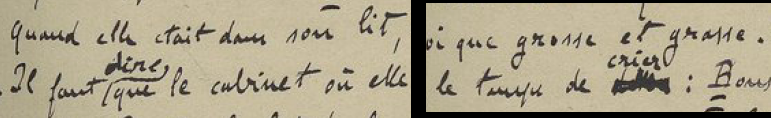 quand elle était dans son lit,
Il faut dire que le cabinet où elle
oi que grosse et grasse.
le temps de crier : Bous